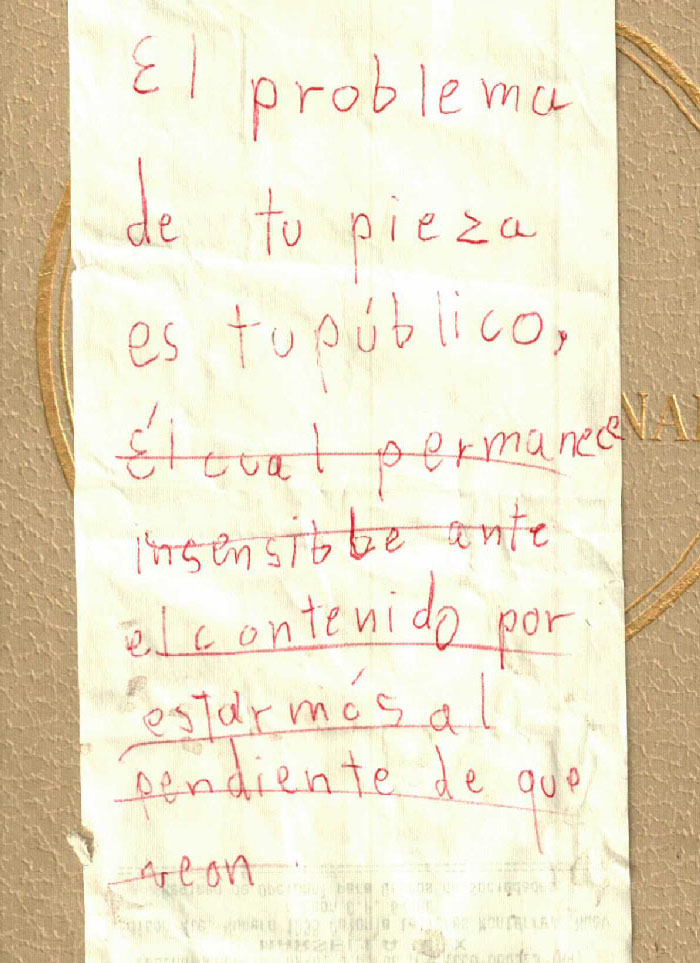 El problema
de tu pieza
es tu público,
Él cual permanece
insensibbe ante
el contenido por
estar más al
pendiente de que
vean
NAL